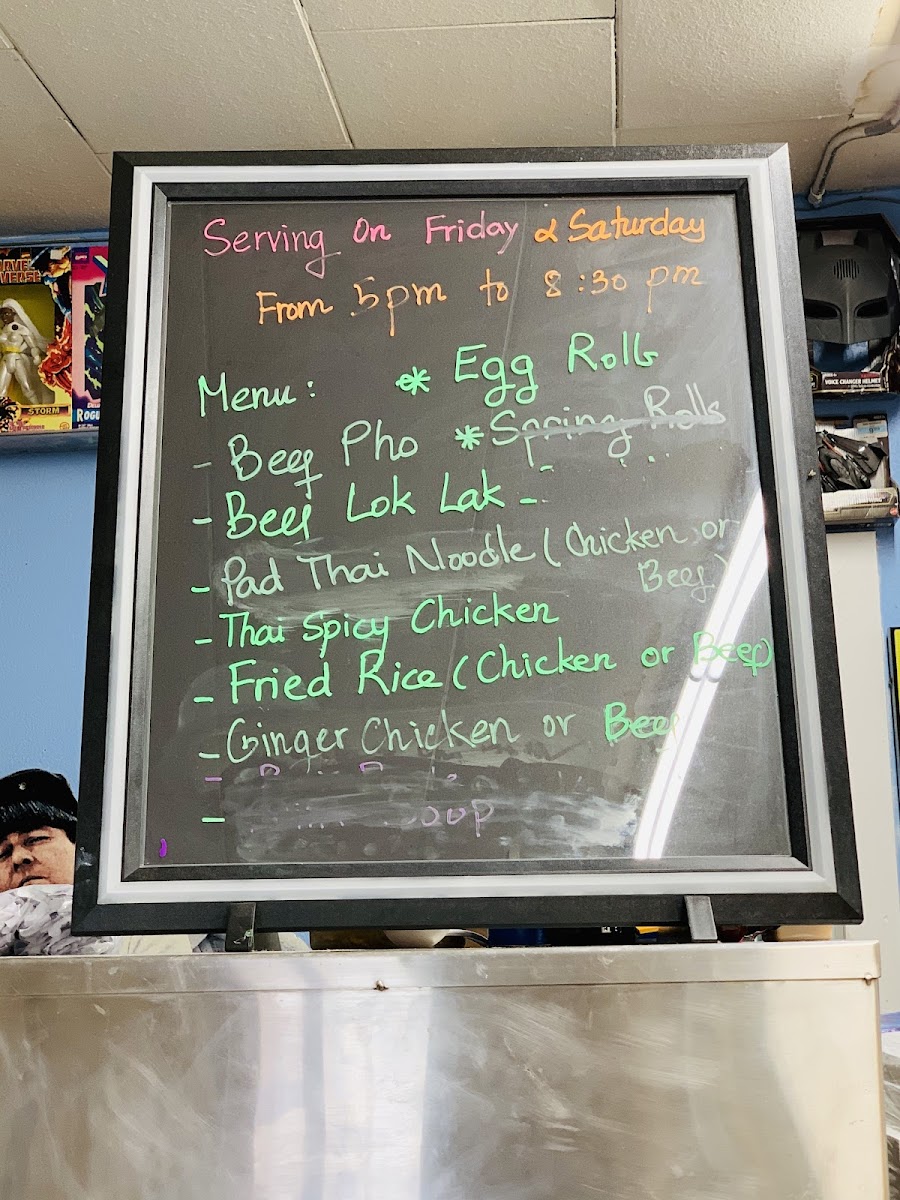 Serving On Friday & Saturday
From 5pm to 8:30 pm
Menu: * Egg Rolls
- Beef Pho * Spring Rolls
- Beef Lok Lak -
- Pad Thai Noodle (Chicken or
Beef)
- Thai Spicy Chicken
- Fried Rice (Chicken or Beef)
- Ginger Chicken or Beef
-
- oup
STORM
VOICE CHANGER HELMET